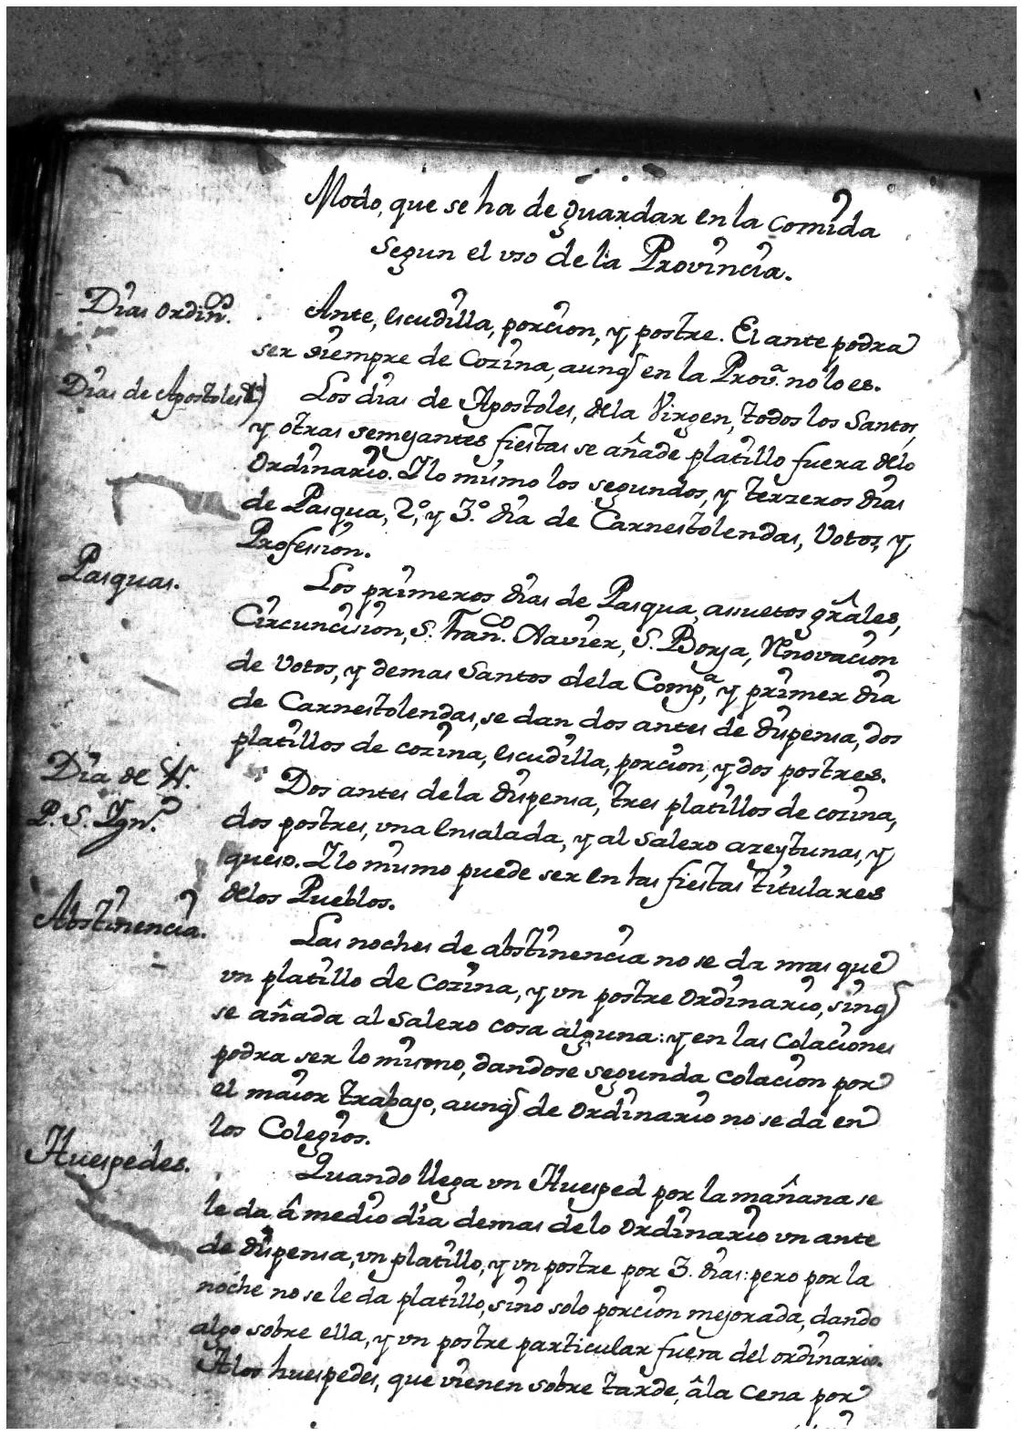 Modo, que se ha de guardar en la comida
Segun el uso de la Provincia.
Dias ordin.os
Ante, escudilla, porcion, y postre. El ante podra
ser siempre de Cozina, aunq en la Prov.a no lo es.
Dias de Apostoles &c)
Los dias de Apostoles, dela Virgen, todos los Santos,
y otras semejantes fiestas se añade platillo fuera delo
Ordinario. I lo mismo los segundos, y terzeros dias
de Pasqua, 2.o y 3.o dia de Carnestolendas, Votos, y
Profession.
Pasquas.
Los primeros dias de Pasqua, assuetos grãles,
Circuncision, S. Fran.co Xavier, S. Borja, Rnovacion
de Votos, y demas Santos dela Comp.a, y primer dia
de Carnestolendas, se dan dos antes de dispensa, dos
platillos de cozina, escudilla, porcion, y dos postres.
Dia de N.
P. S. Ign.o
Dos antes dela dispensa, tres platillos de cozina,
dos postres, vna ensalada, y al Salero azeytunas, y
queso. I lo mismo puede ser en las fiestas titulares
delos Pueblos.
Abstinencia.
Las noches de abstinencia no se da mas que
vn platillo de Cozina, y vn postre ordinario, sinq
se añada al Salero cosa alguna: y en las Colaciones
podra ser lo mismo, dandose segunda colacion por
el maior trabajo, aunq de ordinario no se da en
los Colegios.
Huespedes.
Quando llega vn Huesped por la mañana se
le da â medio dia demas delo ordinario vn ante
de dispensa, vn platillo, y vn postre por 3. dias: pero por la
noche no se le da platillo, sino solo porcion mejorada, dando
algo sobre ella, y vn postre particular fuera del ordinario.
A los huespedes, que vienen sobre tarde, â la cena por